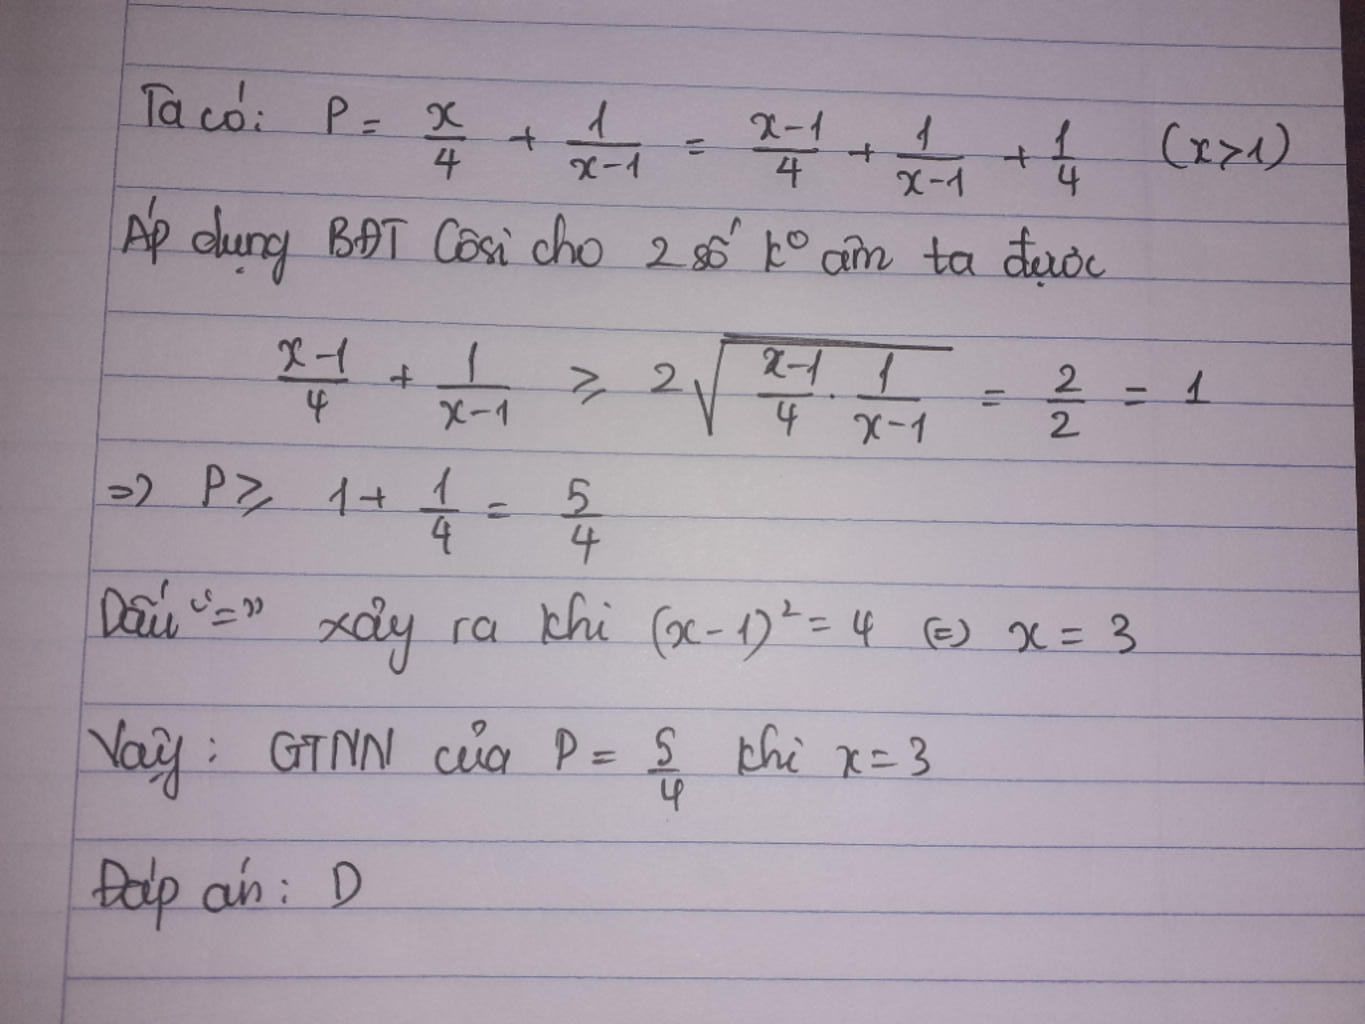 Ta có: P = x/4 + 1/(x-1) = (x-1)/4 + 1/(x-1) + 1/4 (x>1)
Áp dụng BĐT Côsi cho 2 số k° âm ta được
(x-1)/4 + 1/(x-1) ≥ 2√((x-1)/4 · 1/(x-1)) = 2/2 = 1
=> P ≥ 1 + 1/4 = 5/4
Dấu "=" xảy ra khi (x-1)² = 4 (=) x = 3
Vậy: GTNN của P = 5/4 khi x = 3
Đáp án: D